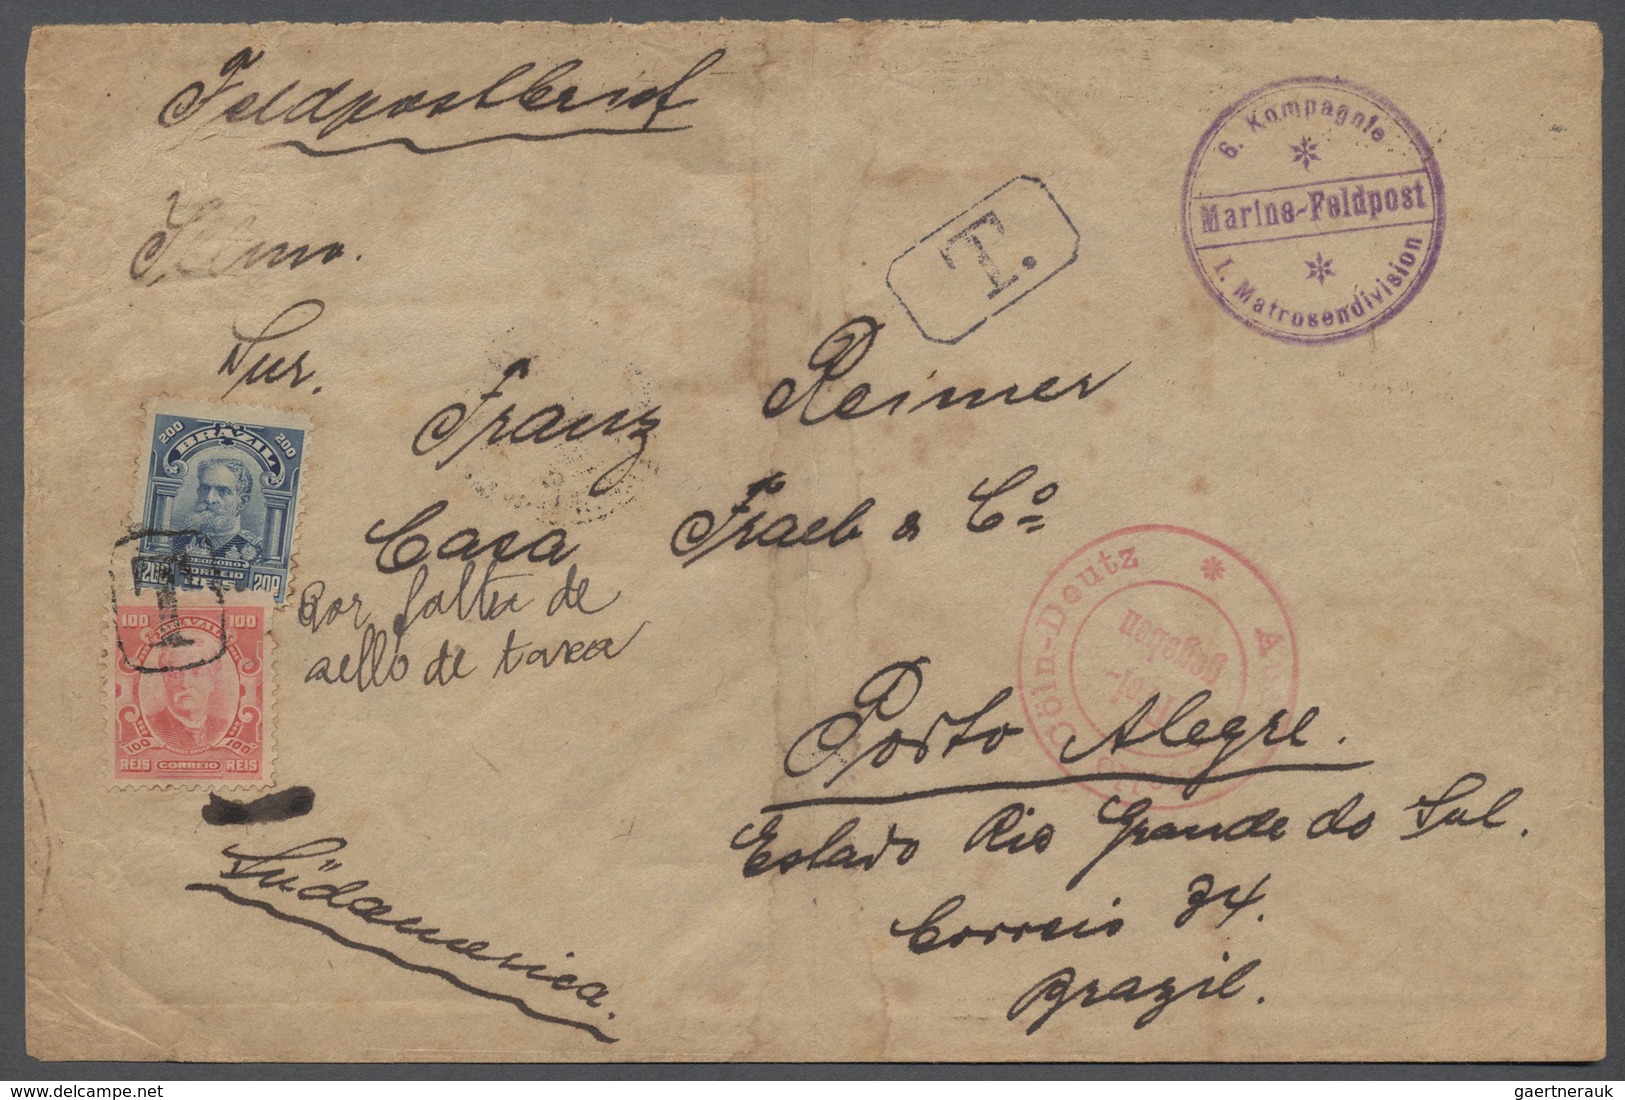 Feldpostbrief
6. Kompagnie
Marine-Feldpost
I. Matrosendivision
T.
Illmo.
Snr.
Franz Reimer
Casa Fraeb & Cº
200 200
BRAZIL
DEODORO
200 CORREIO 200
REIS
T
100 100
BRAZIL
100 100
REIS CORREIO REIS
Por falta de
sello de taxa
Cöln-Deutz *
Frei-
gegeben
Porto Alegre.
Estado Rio Grande do Sul.
Correio 34.
Brazil.
Südamerica.
gaertnerauk